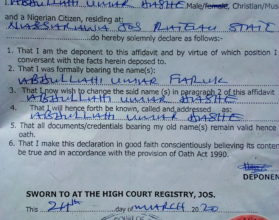 ABDULLAHI UMAR BASHE Male/female, Christian/Mus
and a Nigerian Citizen, residing at:
NASSARAWA JOS PLATEAU STATE
do hereby solemnly declare as follows:-
1. That I am the deponent to this affidavit and by virtue of which position I
conversant with the facts herein deposed to.
2. That I was formally bearing the name(s):
ABDULLAHI UMAR FARUK
3. That I now wish to change the said name (s) in paragraph 2 of this affidavit
ABDULLAHI UMAR BASHE
4. That I will hence forth be known, called and addressed as:
ABDULLAHI UMAR BASHE
5. That all documents/credentials bearing my old name(s) remain valid hence
oath.
6. That I make this declaration in good faith conscientiously believing its conten
be true and in accordance with the provision of Oath Act 1990.
DEPONEN
SWORN TO AT THE HIGH COURT REGISTRY, JOS.
This 24th day of MARCH 20